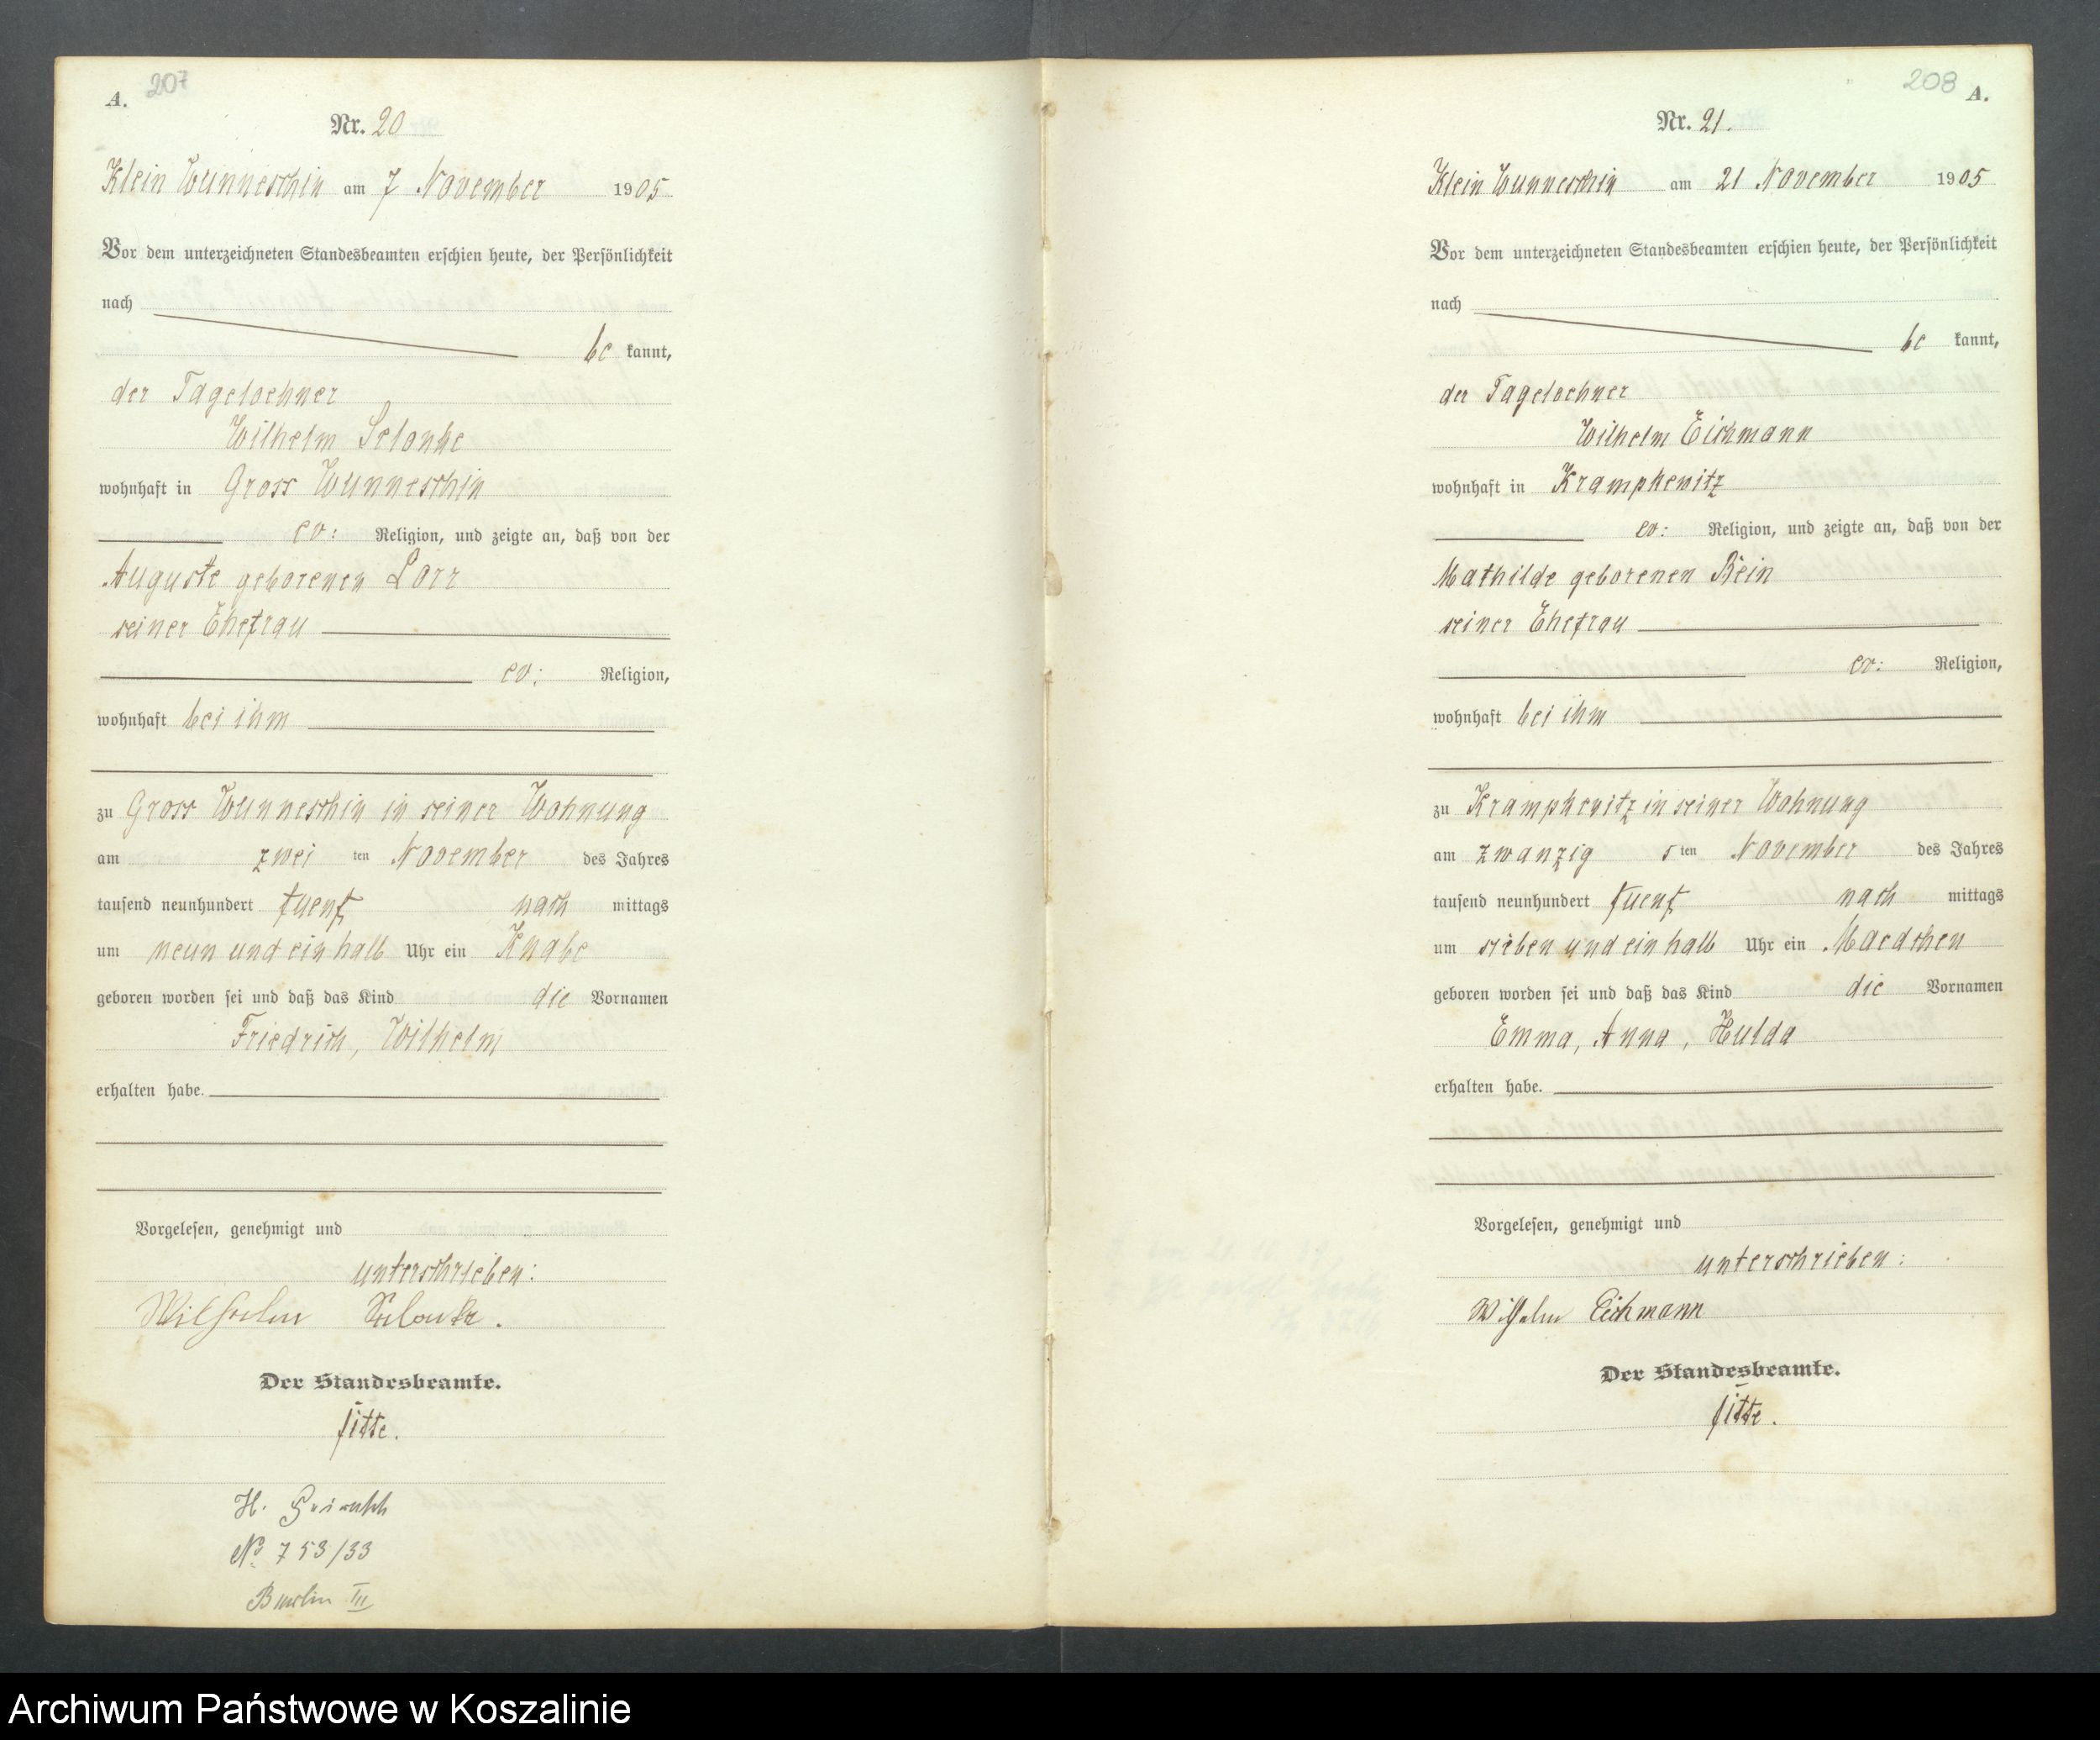 A. 207
Nr. 20
Klein Wunneschin am 7 November 1905
Vor dem unterzeichneten Standesbeamten erschien heute, der Persönlichkeit
nach
be kannt,
der Tageloehner
Wilhelm Selonke
wohnhaft in Gross Wunneschin
ev: Religion, und zeigte an, daß von der
Auguste geborenen Lorr
seiner Ehefrau
ev: Religion,
wohnhaft bei ihm
zu Gross Wunneschin in seiner Wohnung
am zwei ten November des Jahres
tausend neunhundert fuenf nach mittags
um neun und ein halb Uhr ein Knabe
geboren worden sei und daß das Kind die Vornamen
Friedrich, Wilhelm
erhalten habe.
Vorgelesen, genehmigt und
unterschrieben:
Wilhelm Selonke.
Der Standesbeamte.
Fitte.
H.
No 753/33
Berlin III
208 A.
Nr. 21.
Klein Wunneschin am 21 November 1905
Vor dem unterzeichneten Standesbeamten erschien heute, der Persönlichkeit
nach
be kannt,
der Tageloehner
Wilhelm Eichmann
wohnhaft in Krampkewitz
ev: Religion, und zeigte an, daß von der
Mathilde geborenen Bein
seiner Ehefrau
ev: Religion,
wohnhaft bei ihm
zu Krampkewitz in seiner Wohnung
am zwanzig s ten November des Jahres
tausend neunhundert fuenf nach mittags
um sieben und ein halb Uhr ein Maedchen
geboren worden sei und daß das Kind die Vornamen
Emma, Anna, Hulda
erhalten habe.
Vorgelesen, genehmigt und
unterschrieben:
Wilhelm Eichmann
Der Standesbeamte.
Fitte.
Archiwum Państwowe w Koszalinie